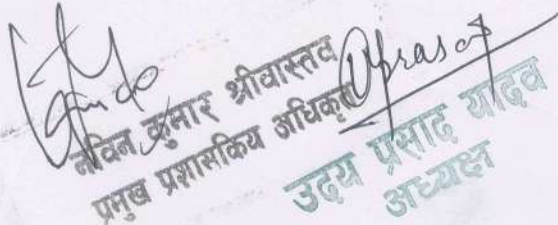 नविन कुमार श्रीवास्तव
प्रमुख प्रशासकिय अधिकृत
Uprasad
उदय प्रसाद यादव
अध्यक्ष